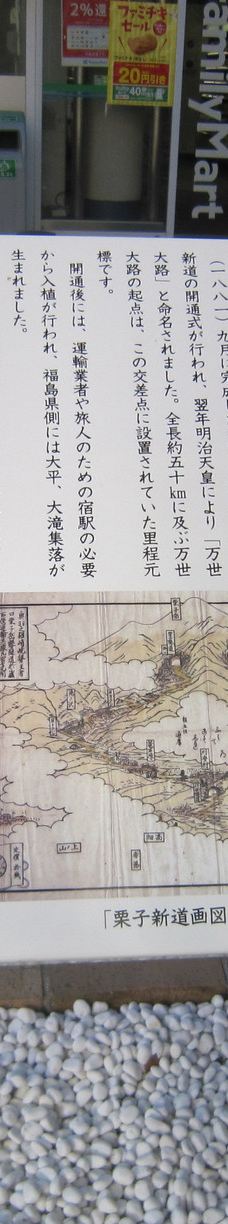 2%還
ファミチキ
セール
20円引き
40
FamilyMart
(一八八一)九月に完成し
新道の開通式が行われ、翌年明治天皇により「万世
大路」と命名されました。全長約五十kmに及ぶ万世
大路の起点は、この交差点に設置されていた里程元
標です。
開通後には、運輸業者や旅人のための宿駅の必要
から入植が行われ、福島県側には大平、大滝集落が
生まれました。
「栗子新道画図